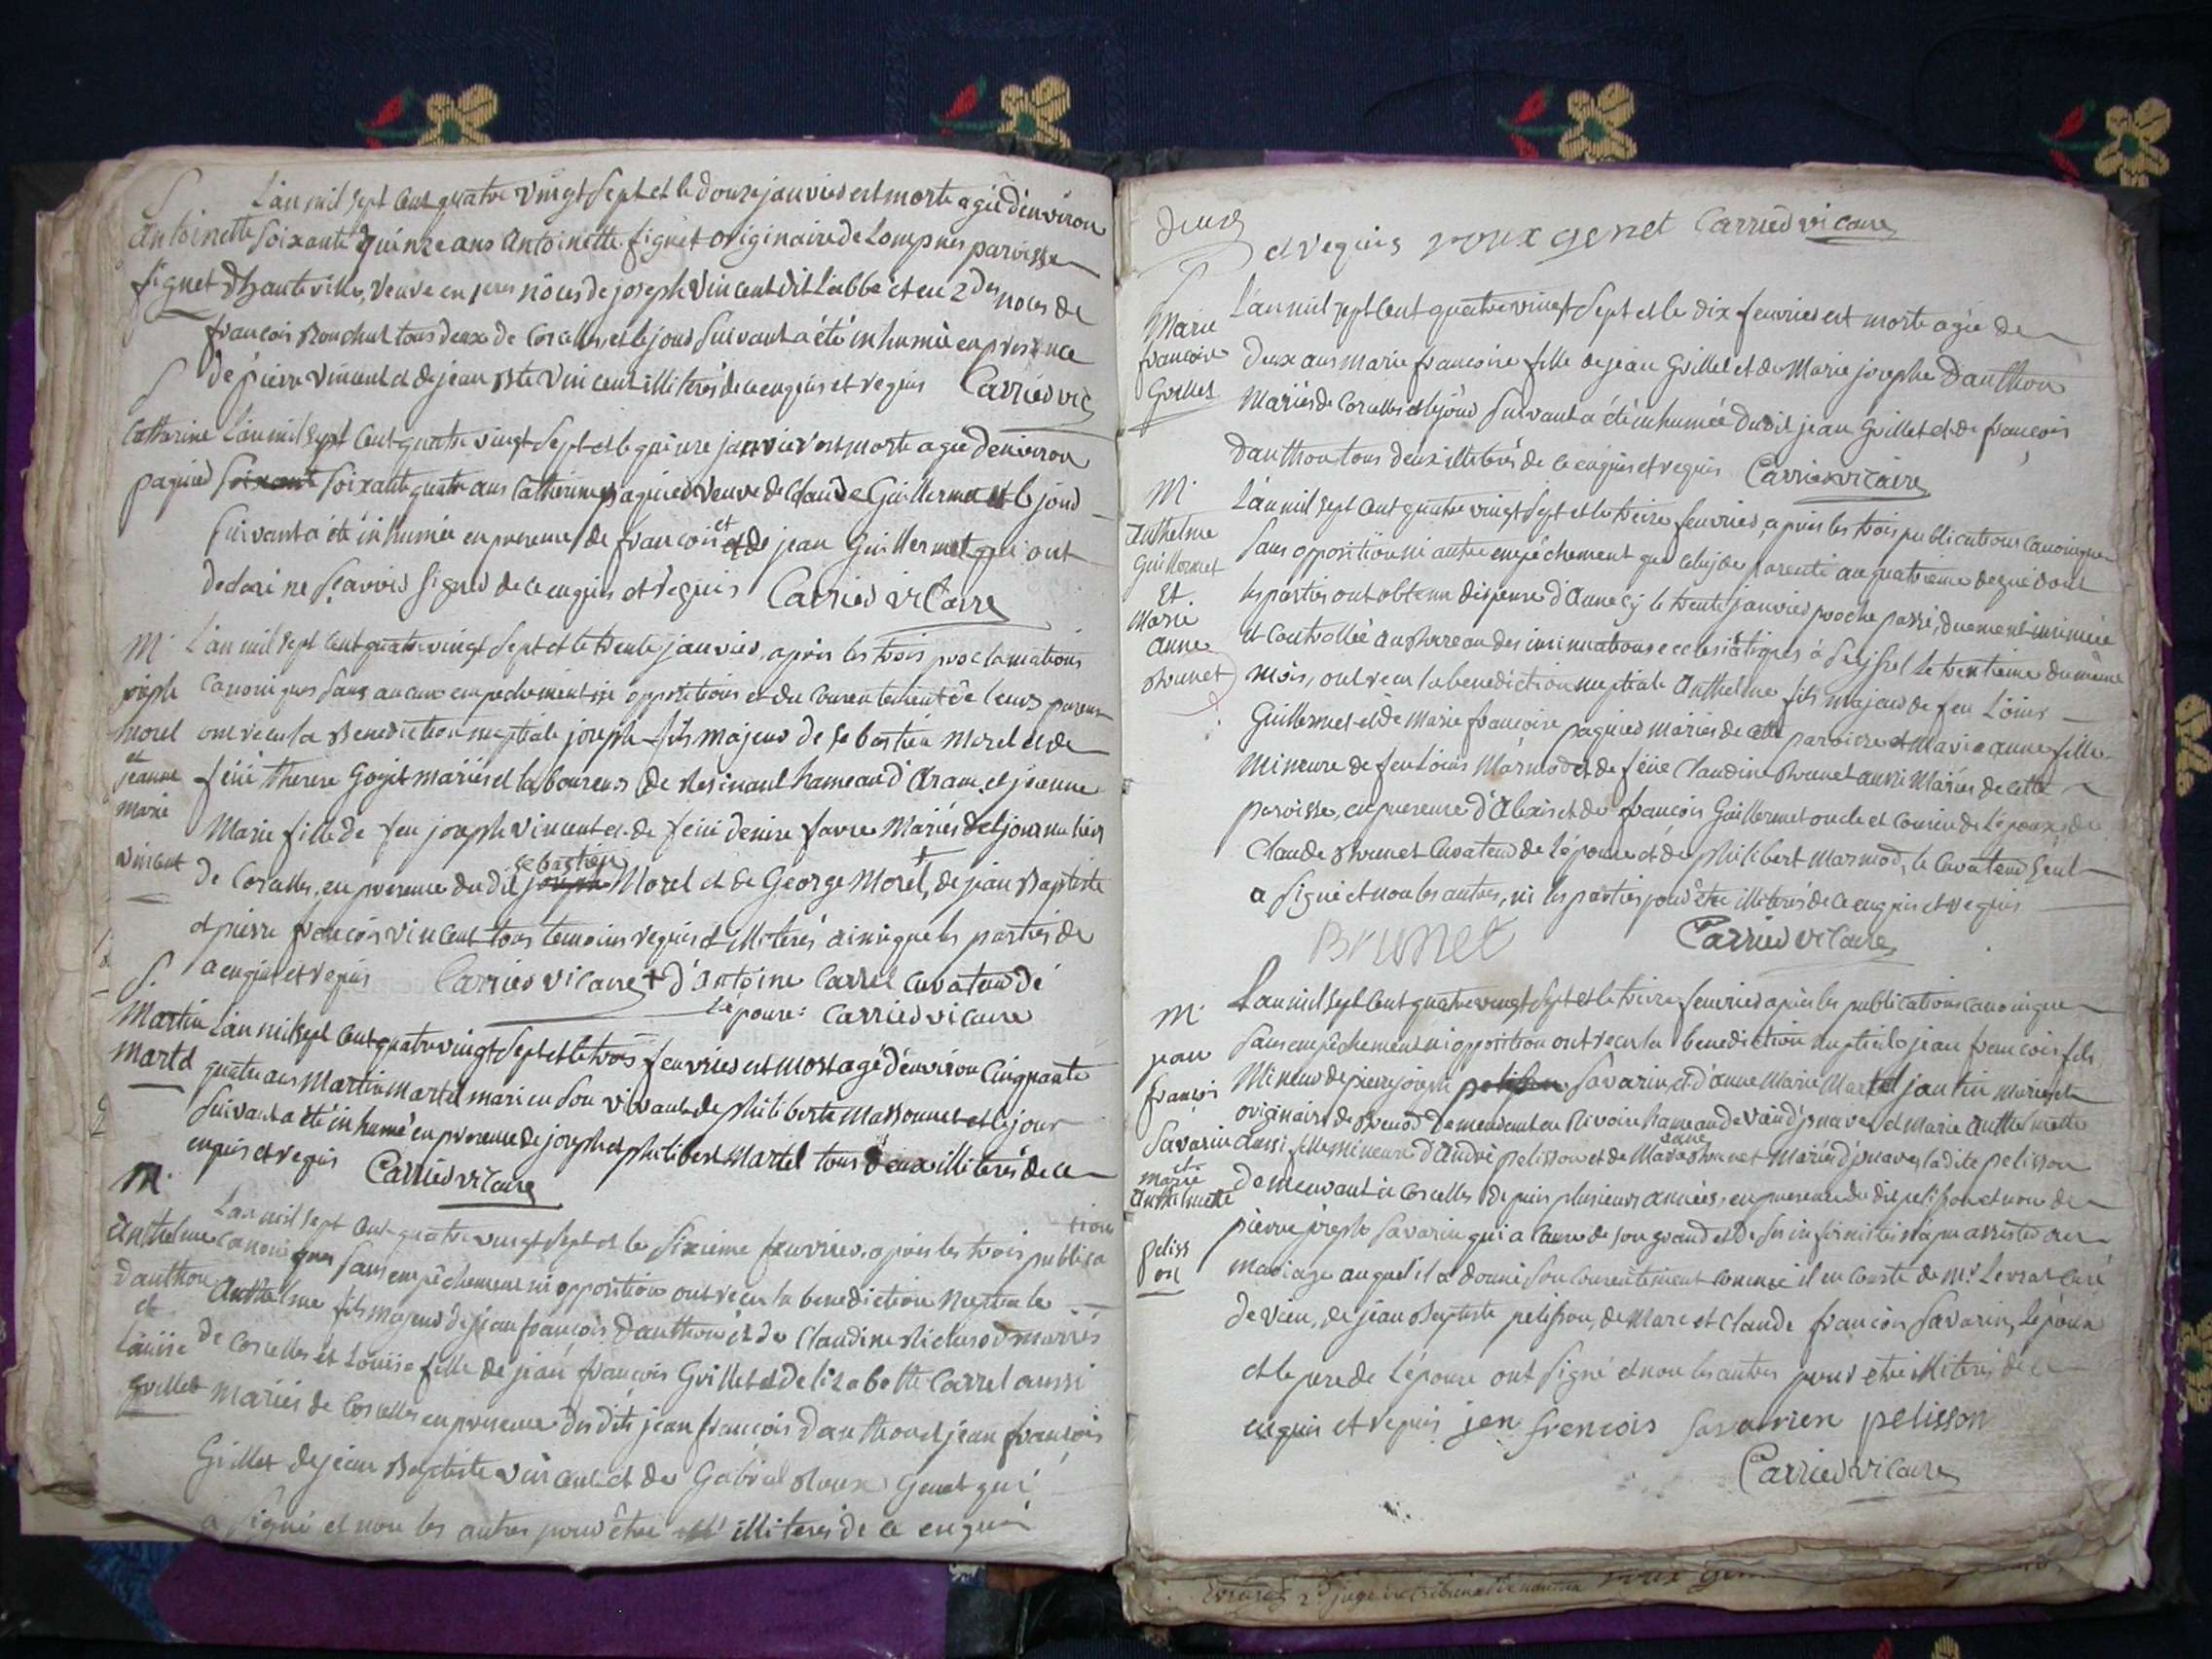 S L'an mil sept cent quatre vingt sept et le douze janvier est morte agée d'environ
Antoinette soixante quinze ans Antoinette fignet originaire de Lompnes paroisse
fignet d'hauteville, veuve en 1eres nôces de joseph Vincent dit L'abbé et en 2des noces de
françois Bouchut tous deux de Corcelles, et le jour suivant a été inhumée en presence
S de pierre Vincent et de jean Bte Vincent illiterés de ce enquis et requis Carrier vic
Catherine L'an mil sept cent quatre vingt sept et le quinze janvier est morte agée d'environ
paquier soixante soixante quatre ans Catherine paquier veuve de Claude Guillermet et le jour
suivant a été inhumée en presence de francois et de jean Guillermet qui ont
declaré ne sçavoir signer de ce enquis et requis Carrier vicaire
M. L'an mil sept cent quatre vingt sept et le trente janvier, après les trois proclamations
joseph canoniques sans aucun empechement ni opposition et du consentement de leurs parens
morel ont reçu la Benediction nuptiale joseph fils majeur de Sebastien Morel et de
et
jeanne feüe therese Gojet mariés et laboureurs de Resinant hameau d'Aranc et jeanne
marie Marie fille de feu joseph vincent et de feüe denise favre Mariés et journaliers
vincent de Corcelles, en presence du dit joseph sebastien Morel et de George Morel, de jean Baptiste
et pierre françois vincent tous temoins requis et illiterés ainsi que les parties de
S. a enquis et requis Carrier vicaire + d'Antoine Carrel curateur de
L'epouse: Carrier vicaire
Martin L'an mil sept cent quatre vingt sept et le trois fevrier est mort agé d'environ cinquante
Martel quatre ans Martin Martel mari en son vivant de philiberte Massonnet et le jour
suivant a été inhumé en presence de joseph et philibert Martel tous deux illiterés de ce
enquis et requis Carrier vicaire
M. L'an mil sept cent quatre vingt sept et le sixieme fevrier, après les trois publica
tions
Anthelme canoniques sans empêchement ni opposition ont reçu la benediction Nuptiale
danthon Anthelme fils majeur de jean françois Danthon et de Claudine Richerod mariés
et
Loüise de Corcelles et Louise fille de jean françois Guillet et de lizabette Carrel aussi
guillet mariés de Corcelles en presence des dits jean françois danthon et jean françois
Guillet de jean Baptiste vincent et de Gabriel Roux Genet qui
a signé et non les autres pour être illiterés de ce enquis
deux
et requis roux genet Carrier vicaire
S L'an mil sept cent quatre vingt sept et le dix fevrier est morte agée de
Marie
francoise deux ans Marie francoise fille de jean Guillet et de Marie josephe Danthon
Guillet Mariés de Corcelles et le jour suivant a été inhumée du dit jean Guillet et de françois
Danthon tous deux illiterés de ce enquis et requis Carrier vicaire
M. L'an mil sept cent quatre vingt sept et le treize fevrier, après les trois publications canoniques
Anthelme sans opposition ni autre empêchement que celuj de parenté au quatrieme degré dont
Guillermet les parties ont obtenu dispense d'Annecy le trente janvier proche passé, duement insinuée
Et
Marie et controllée au Bureau des insinuations ecclesiastiques à Seyssel le trentieme du même
anne
Brunet mois, ont reçu la benediction nuptiale Anthelme fils majeur de feu Loüis
Guillermet et de Marie francoise paquier mariés de cette paroisse et Marie anne fille
Mineure de feu Loüis Marmod et de feüe Claudine Brunet aussi Mariés de cette
paroisse, en presence d'Alexis et de françois Guillermet oncle et cousin de L'epoux, de
Claude Brunet Curateur de l'épouse et de philibert Marmod, le curateur seul
a signé et non les autres, ni les parties pour être illiterés de ce enquis et requis
Brunet Carrier vicaire
M. L'an mil sept cent quatre vingt sept et le treize fevrier après les publications canoniques
jean sans empêchement ni opposition ont reçu la benediction nuptiale jean francois fils
françois Mineur de pierre joseph pelisson Savarin, et d'anne Marie Martel jantin mariés et
originaire de Brenod demeurant en Rivoire hameau de Vaux d'jznave et Marie Anthelmette
Savarin aussi fille mineure d'André pelisson et de Marie anne Brunet Mariés d'jznaves ladite pelisson
et
marie demeurant à Corcelles depuis plusieurs années, en presence du dit pelisson et non de
Anthelmette
pierre joseph Savarin qui a cause de son grand et de ses infirmités n'a pu assister au
peliss
on mariage auquel il a donné son consentement comme il en conste de Mr Levrat Curé
de Vieu, de jean Baptiste pelisson, de Marc et Claude françois Savarin, L'epoux
et le pere de L'épouse ont signé et non les autres pour etre illiterés de ce
enquis et requis jan frencois savarien pelisson
Carrier vicaire